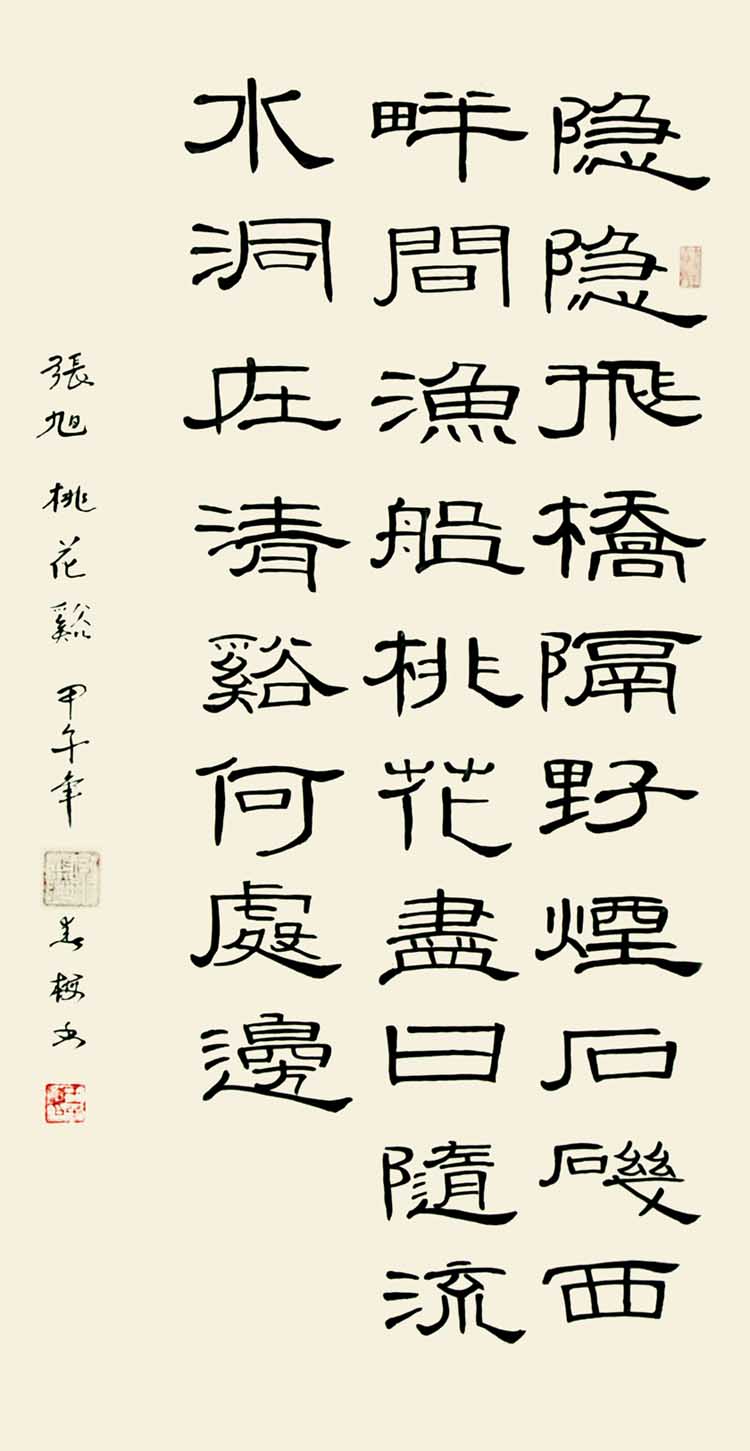 隐隐飛橋隔野煙石磯西
畔間漁船桃花盡日隨流
水洞在清谿何處邊
張旭 桃花谿 甲午年